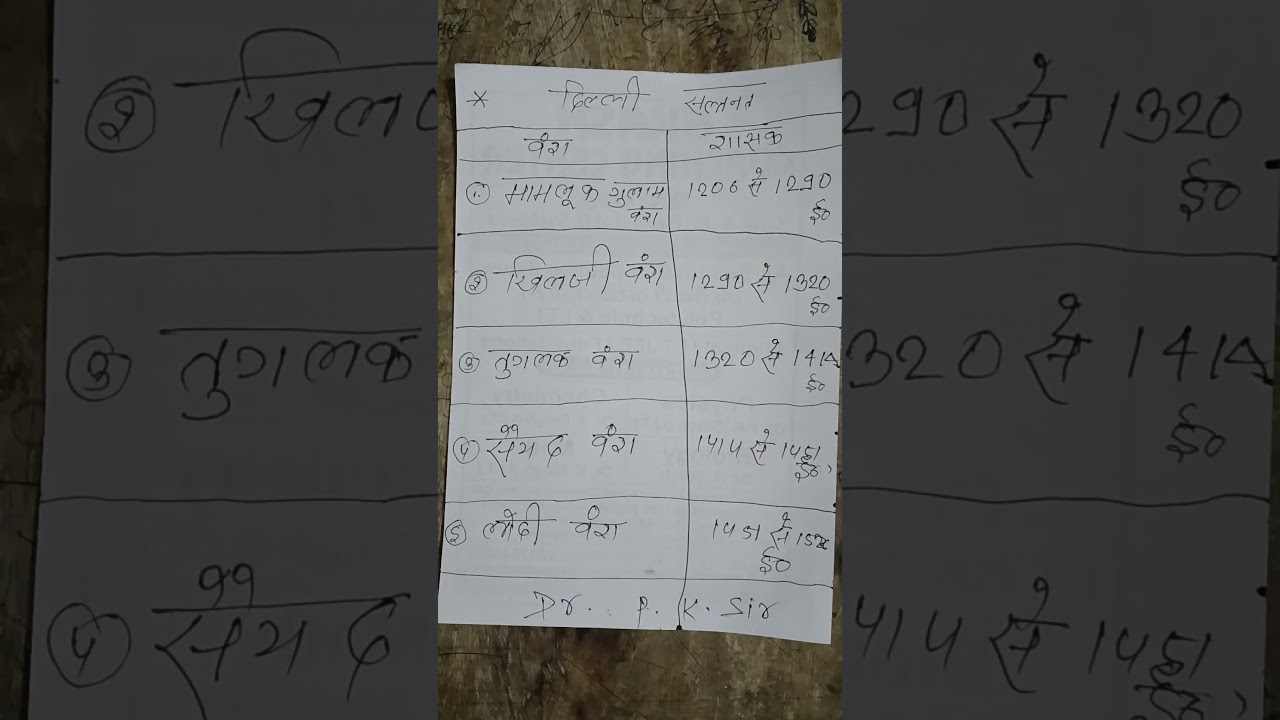 * दिल्ली सल्तनत
वंश शासक
① मामलूक गुलाम वंश 1206 से 1290 ई०
② खिलजी वंश 1290 से 1320 ई०
③ तुगलक वंश 1320 से 1414 ई०
④ सैयद वंश 1414 से 1451 ई०
⑤ लोदी वंश 1451 से ई०
Dr. P. K. Sir